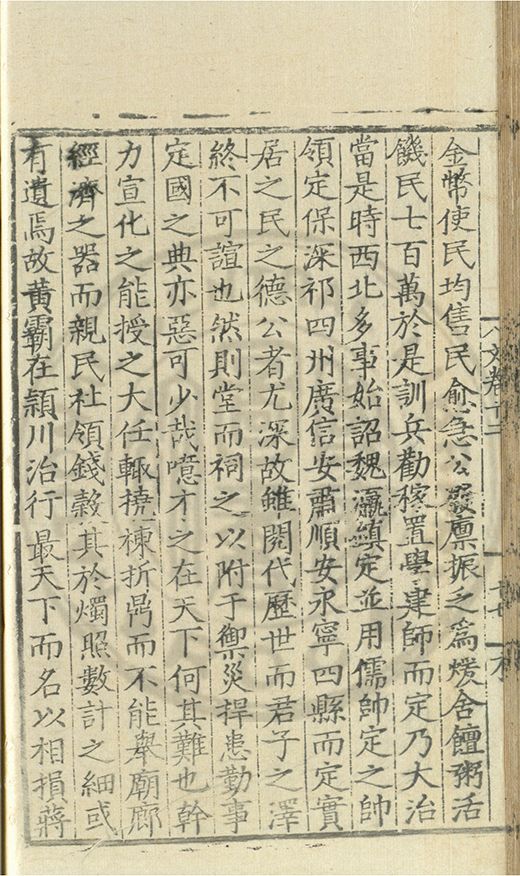 金幣使民均售民愈急公發廪振之為煖舍饘粥活
饑民七百萬於是訓兵勸稼置學建師而定乃大治
當是時西北多事始詔魏瀛鎮定並用儒帥定之帥
領定保深祁四州廣信安肅順安永寧四縣而定實
居之民之德公者尤深故雖閱代歷世而君子之澤
終不可諠也然則堂而祠之以附于禦災捍患勤事
定國之典亦惡可少哉噫才之在天下何其難也幹
力宣化之能授之大任輒撓棟折鼎而不能舉廟廊
經濟之器而親民社領錢穀其於燭照數計之細或
有遺焉故黃霸在頴川治行最天下而名以相損蔣
文卷十二